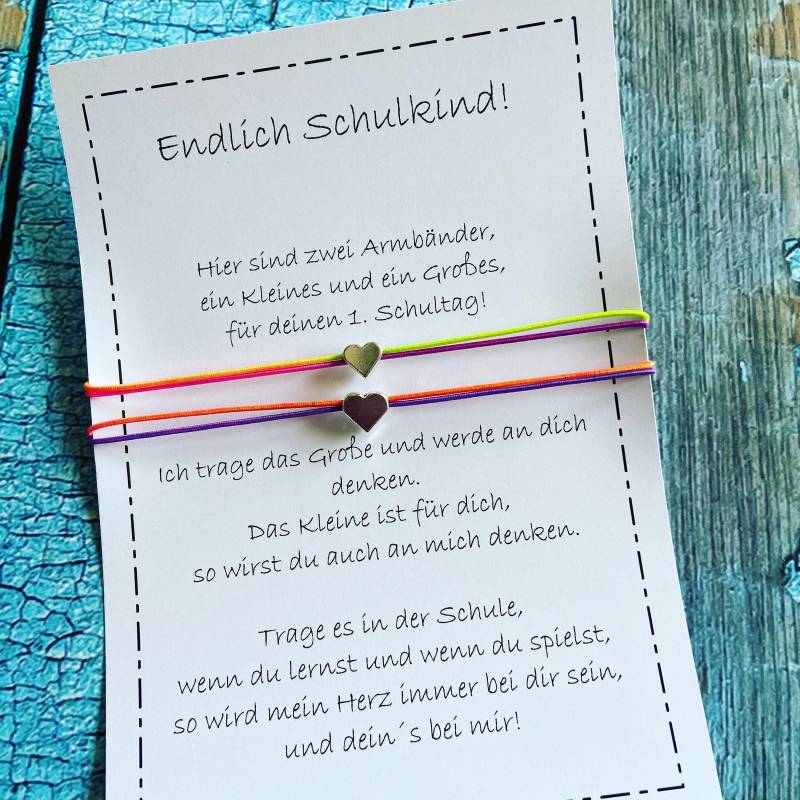 Endlich Schulkind!
Hier sind zwei Armbänder,
ein Kleines und ein Großes,
für deinen 1. Schultag!
Ich trage das Große und werde an dich
denken.
Das Kleine ist für dich,
so wirst du auch an mich denken.
Trage es in der Schule,
wenn du lernst und wenn du spielst,
so wird mein Herz immer bei dir sein,
und dein´s bei mir!